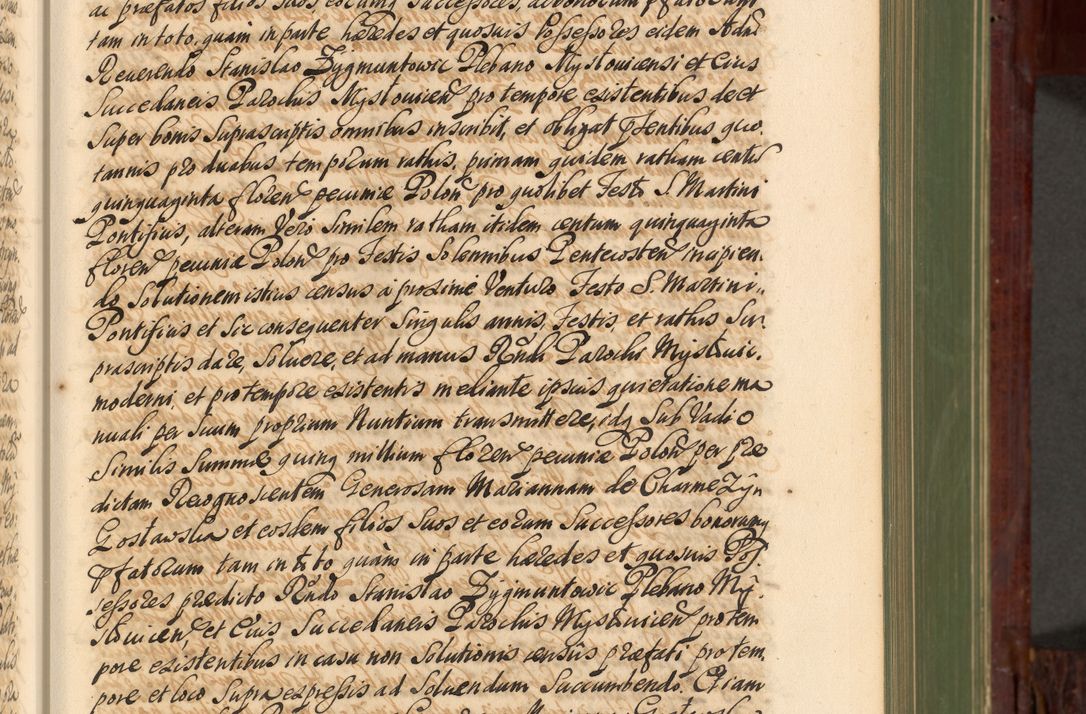 ac præfatos filios suos, eorumq Successores, ac bonorum pfatorum
tam in toto, quam in parte hæredes et quosuis Possessores eidem Adm
Reuerendo Stanislao Zygmuntowic Plebano Myslouicensi et Eius
Succedaneis Parochis Myslouicen pro tempore existentibus de et
Super bonis suprascriptis omnibus inscribit, et obligat psentibus quo
tannis pro duabus temporum rathis, primam quidem ratham centu
quinquaginta floren pecuniæ Polon pro quolibet Festo S. Martini
Pontificis, alteram Vero Similem ratham itidem centum quinquaginta
floren pecuniæ Polon pro Festis Solennibus Pentecosten incipien
do Solutionem istius census à proxime Venturo Festo S. Martini
Pontificis et sic consequenter Singulis annis, Festis, et rathis Su
prascriptis dare, Soluere, et ad manus Rndi Parochi Myslouic.
moderni, et pro tempore existentis mediante ipsius quietatione ma
nuali per Suum proprium Nuntium transmittere, idq Sub Vadio
Similis Summæ quinq millium floren pecuniæ Polon per præ
dictam Recognoscentem Generosam Mariannam de Charmezÿn
Gostawska et eosdem filios Suos et eorum Successores bonorumq
pfatorum tam in toto quàm in parte hæredes et quosuis Pos
sessores prædicto Rndo Stanislao Zygmuntowic Plebano Mÿ
slouicen, et Eius Succedaneis Parochis Myslouicen pro tem
pore existentibus in casu non Solutionis censûs præfati pro tem
pore et loco Supra expressis ad Soluendum Succumbendo. Etiam